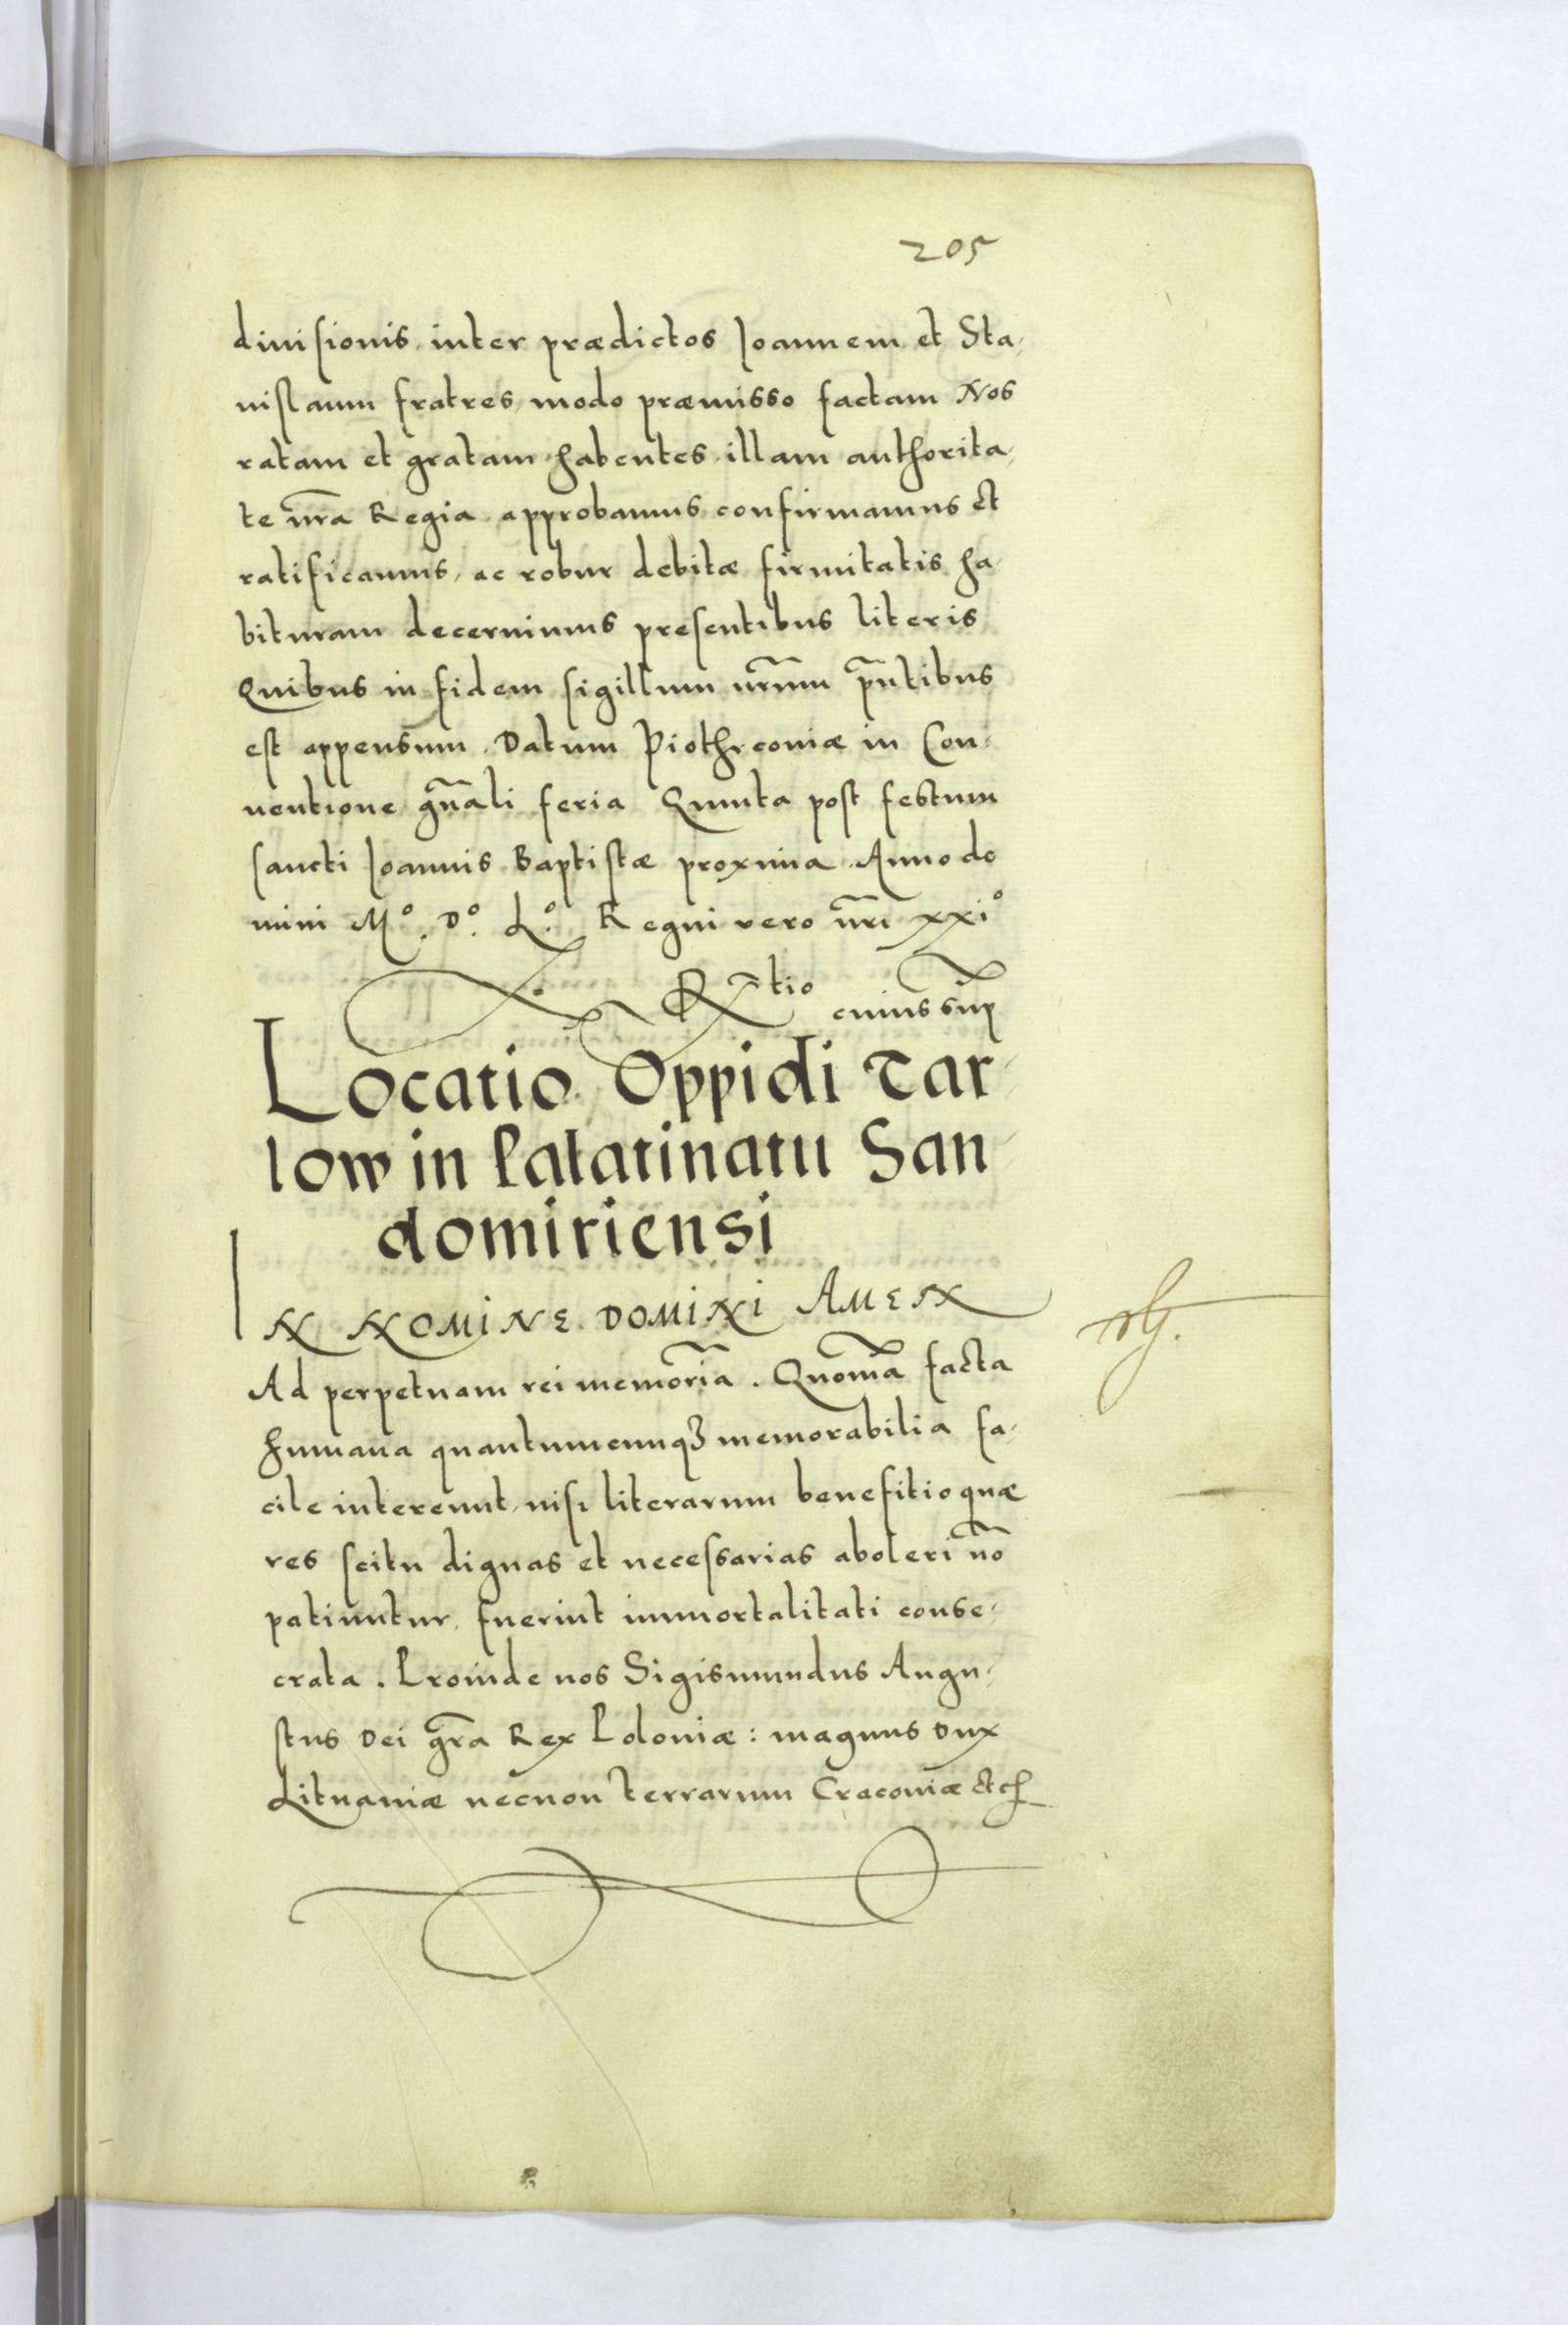 205
divisionis inter prædictos Ioannem et Sta-
nislaum fratres, modo præmisso factam Nos
ratam et gratam habentes illam authorita-
te nr̃a Regia approbamus confirmamus et
ratificamus, ac robur debitæ firmitatis ha-
bituram decernimus presentibus literis
Quibus in fidem sigillum nr̃um pñtibus
est appensum. Datum Piothrconiæ in Con-
uentione gñali feria Quinta post festum
sancti Ioannis Baptistæ proxima Anno do
mini Mº. Dº. Lº. Regni vero nr̃i xxiº
R̃tio cuius sup̃
Locatio Oppidi Tar-
low in Palatinatu San-
domiriensi
IN NOMINE DOMINI AMEN
Ad perpetuam rei memor̃ia. Quoniã facta
humana quantumcunqꝫ memorabilia fa-
cile intereunt, nisi literarum benefitio quæ
res scitu dignas et necessarias aboleri nõ
patiuntur, fuerint immortalitati conse-
crata. Proinde nos Sigismundus Augu-
stus Dei gr̃a Rex Poloniæ: magnus Dux
Lituaniæ necnon terrarum Cracouiæ etc